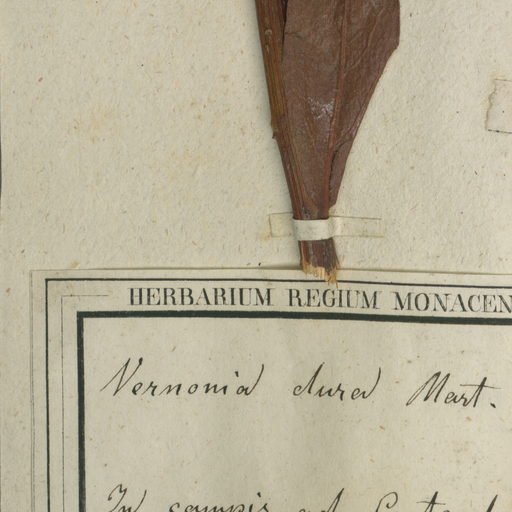 HERBARIUM REGIUM MONACEN
Vernonia dura Mart.
In campis ad